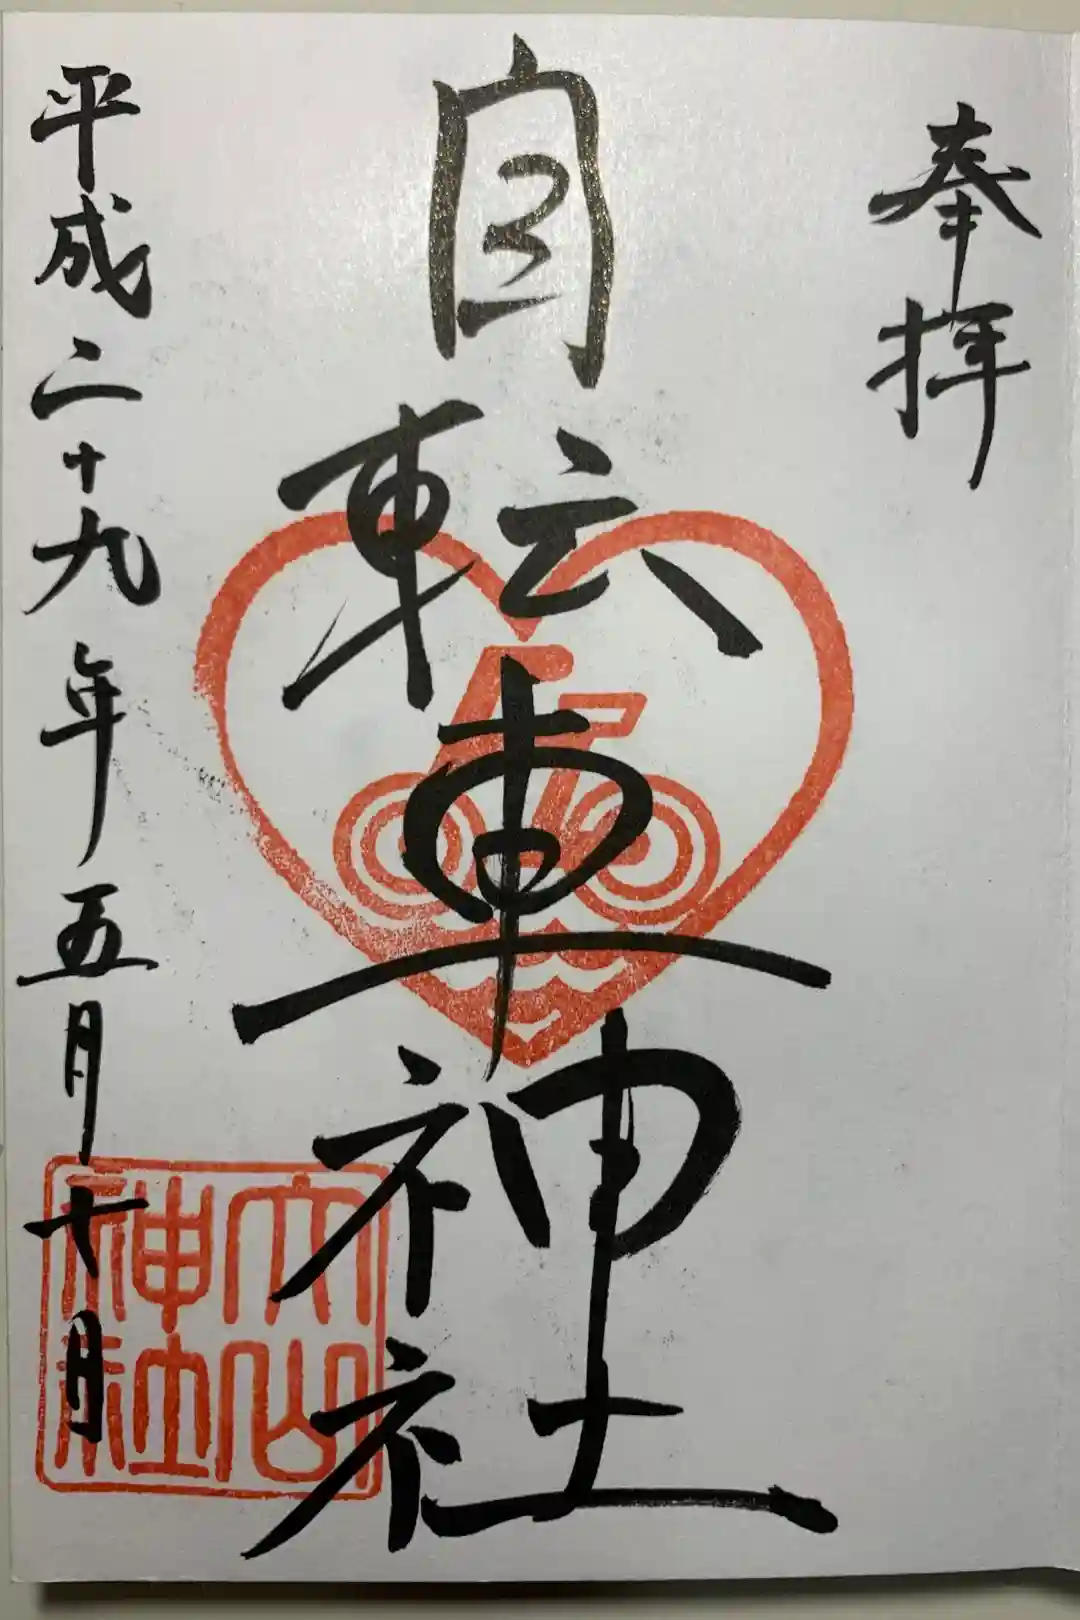 奉拝
自転車神社
平成二十九年五月十日
大山
神社